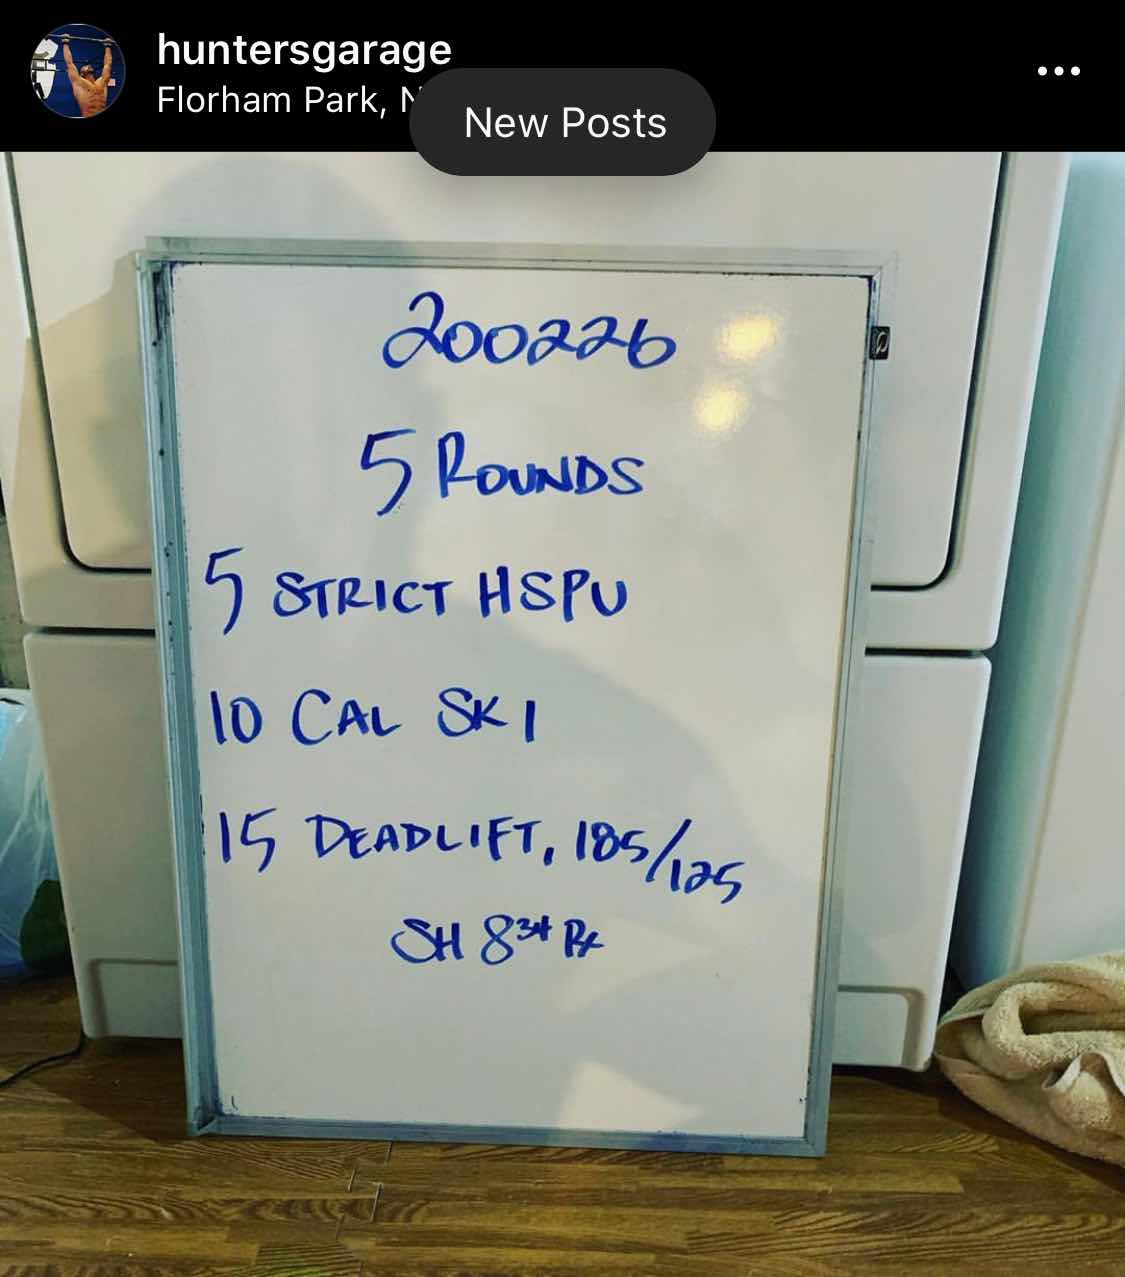 huntersgarage
Florham Park, N
New Posts
200226
5 ROUNDS
5 STRICT HSPU
10 CAL SKI
15 DEADLIFT, 185/125
SH 834 Rx